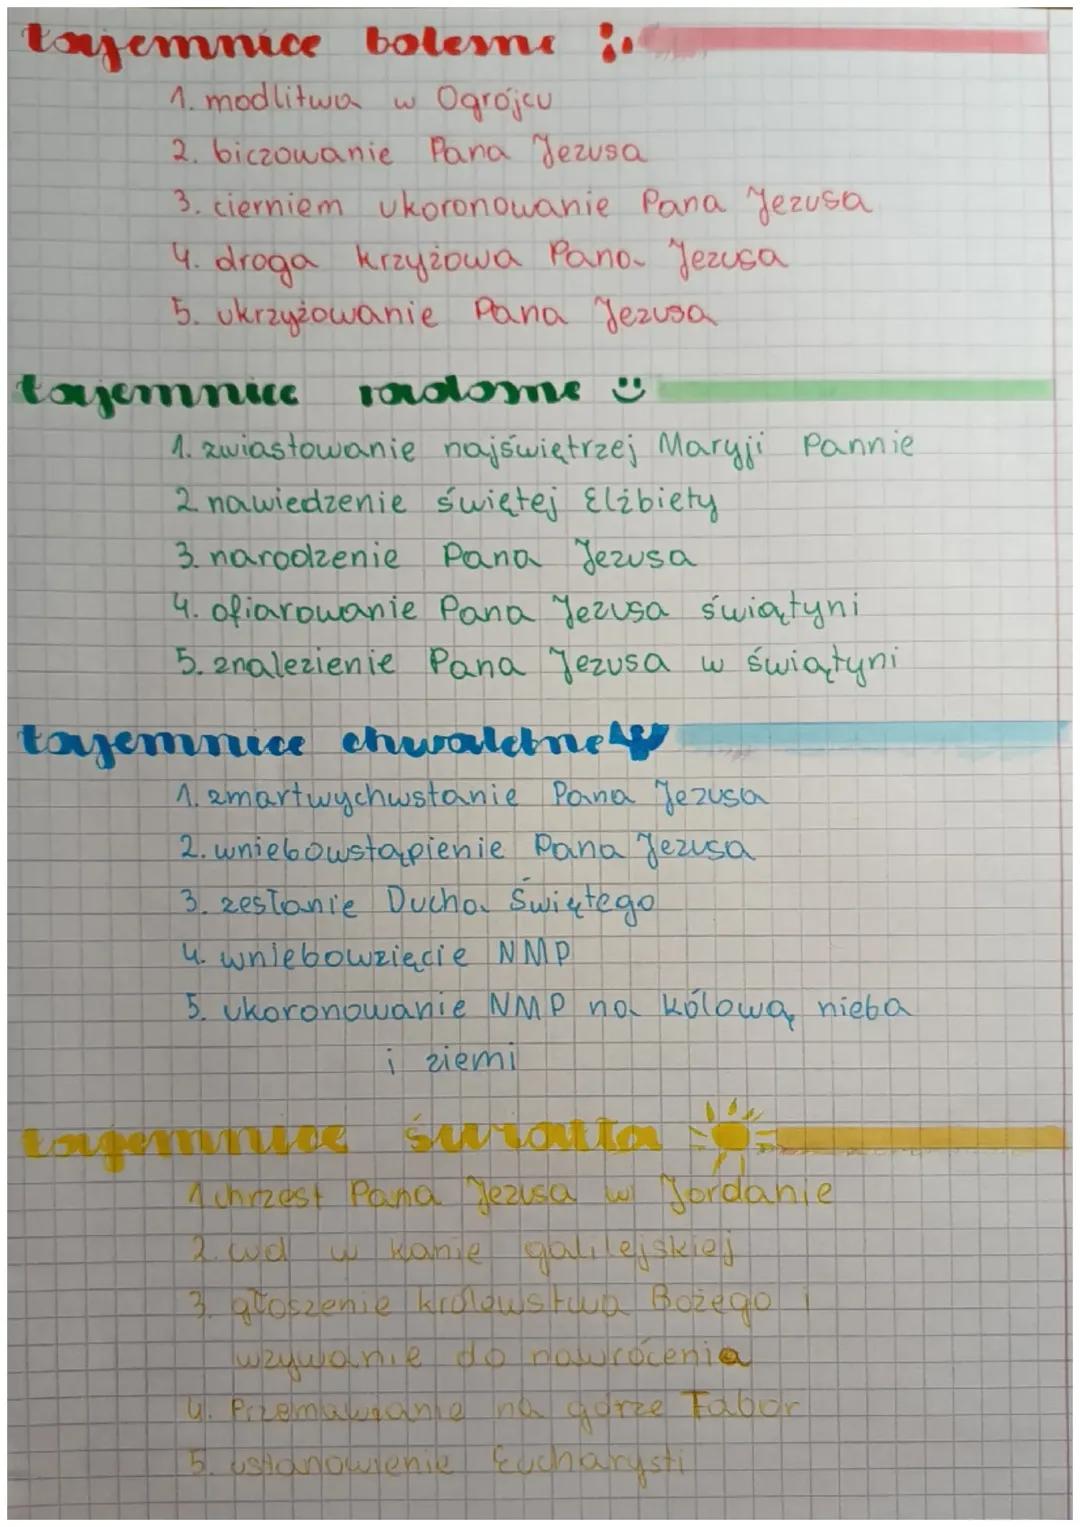 tajemnice bolesne
1. modlitwa w Ogrójcu
2. biczowanie Pana Jezusa
3. cierniem ukoronowanie Pana Jezusa
4. droga krzyżowa Pana Jezusa
5. ukrzyżowanie Pana Jezusa
tajemnice radosne
1. zwiastowanie najświętrzej Maryji Pannie
2 nawiedzenie świętej Elżbiety
3. narodzenie Pana Jezusa
4. ofiarowanie Pana Jezusa świątyni
5. znalezienie Pana Jezusa w świątyni
tajemnice chwalebne
1. zmartwychwstanie Pana Jezusa
2. wniebowstąpienie Pana Jezusa
3. zesłanie Ducha Świętego
4. wniebowzięcie NMP
5. ukoronowanie NMP na kólową nieba
i ziemi
tajemnice światła
1 chrzest Pana Jezusa w Jordanie
2. cud w kanie galilejskiej
3. głoszenie królewstwa Bożego i
wzywanie do nawrócenia
4. Przemawianie na górze Tabor
5. ustanowienie Eucharysti